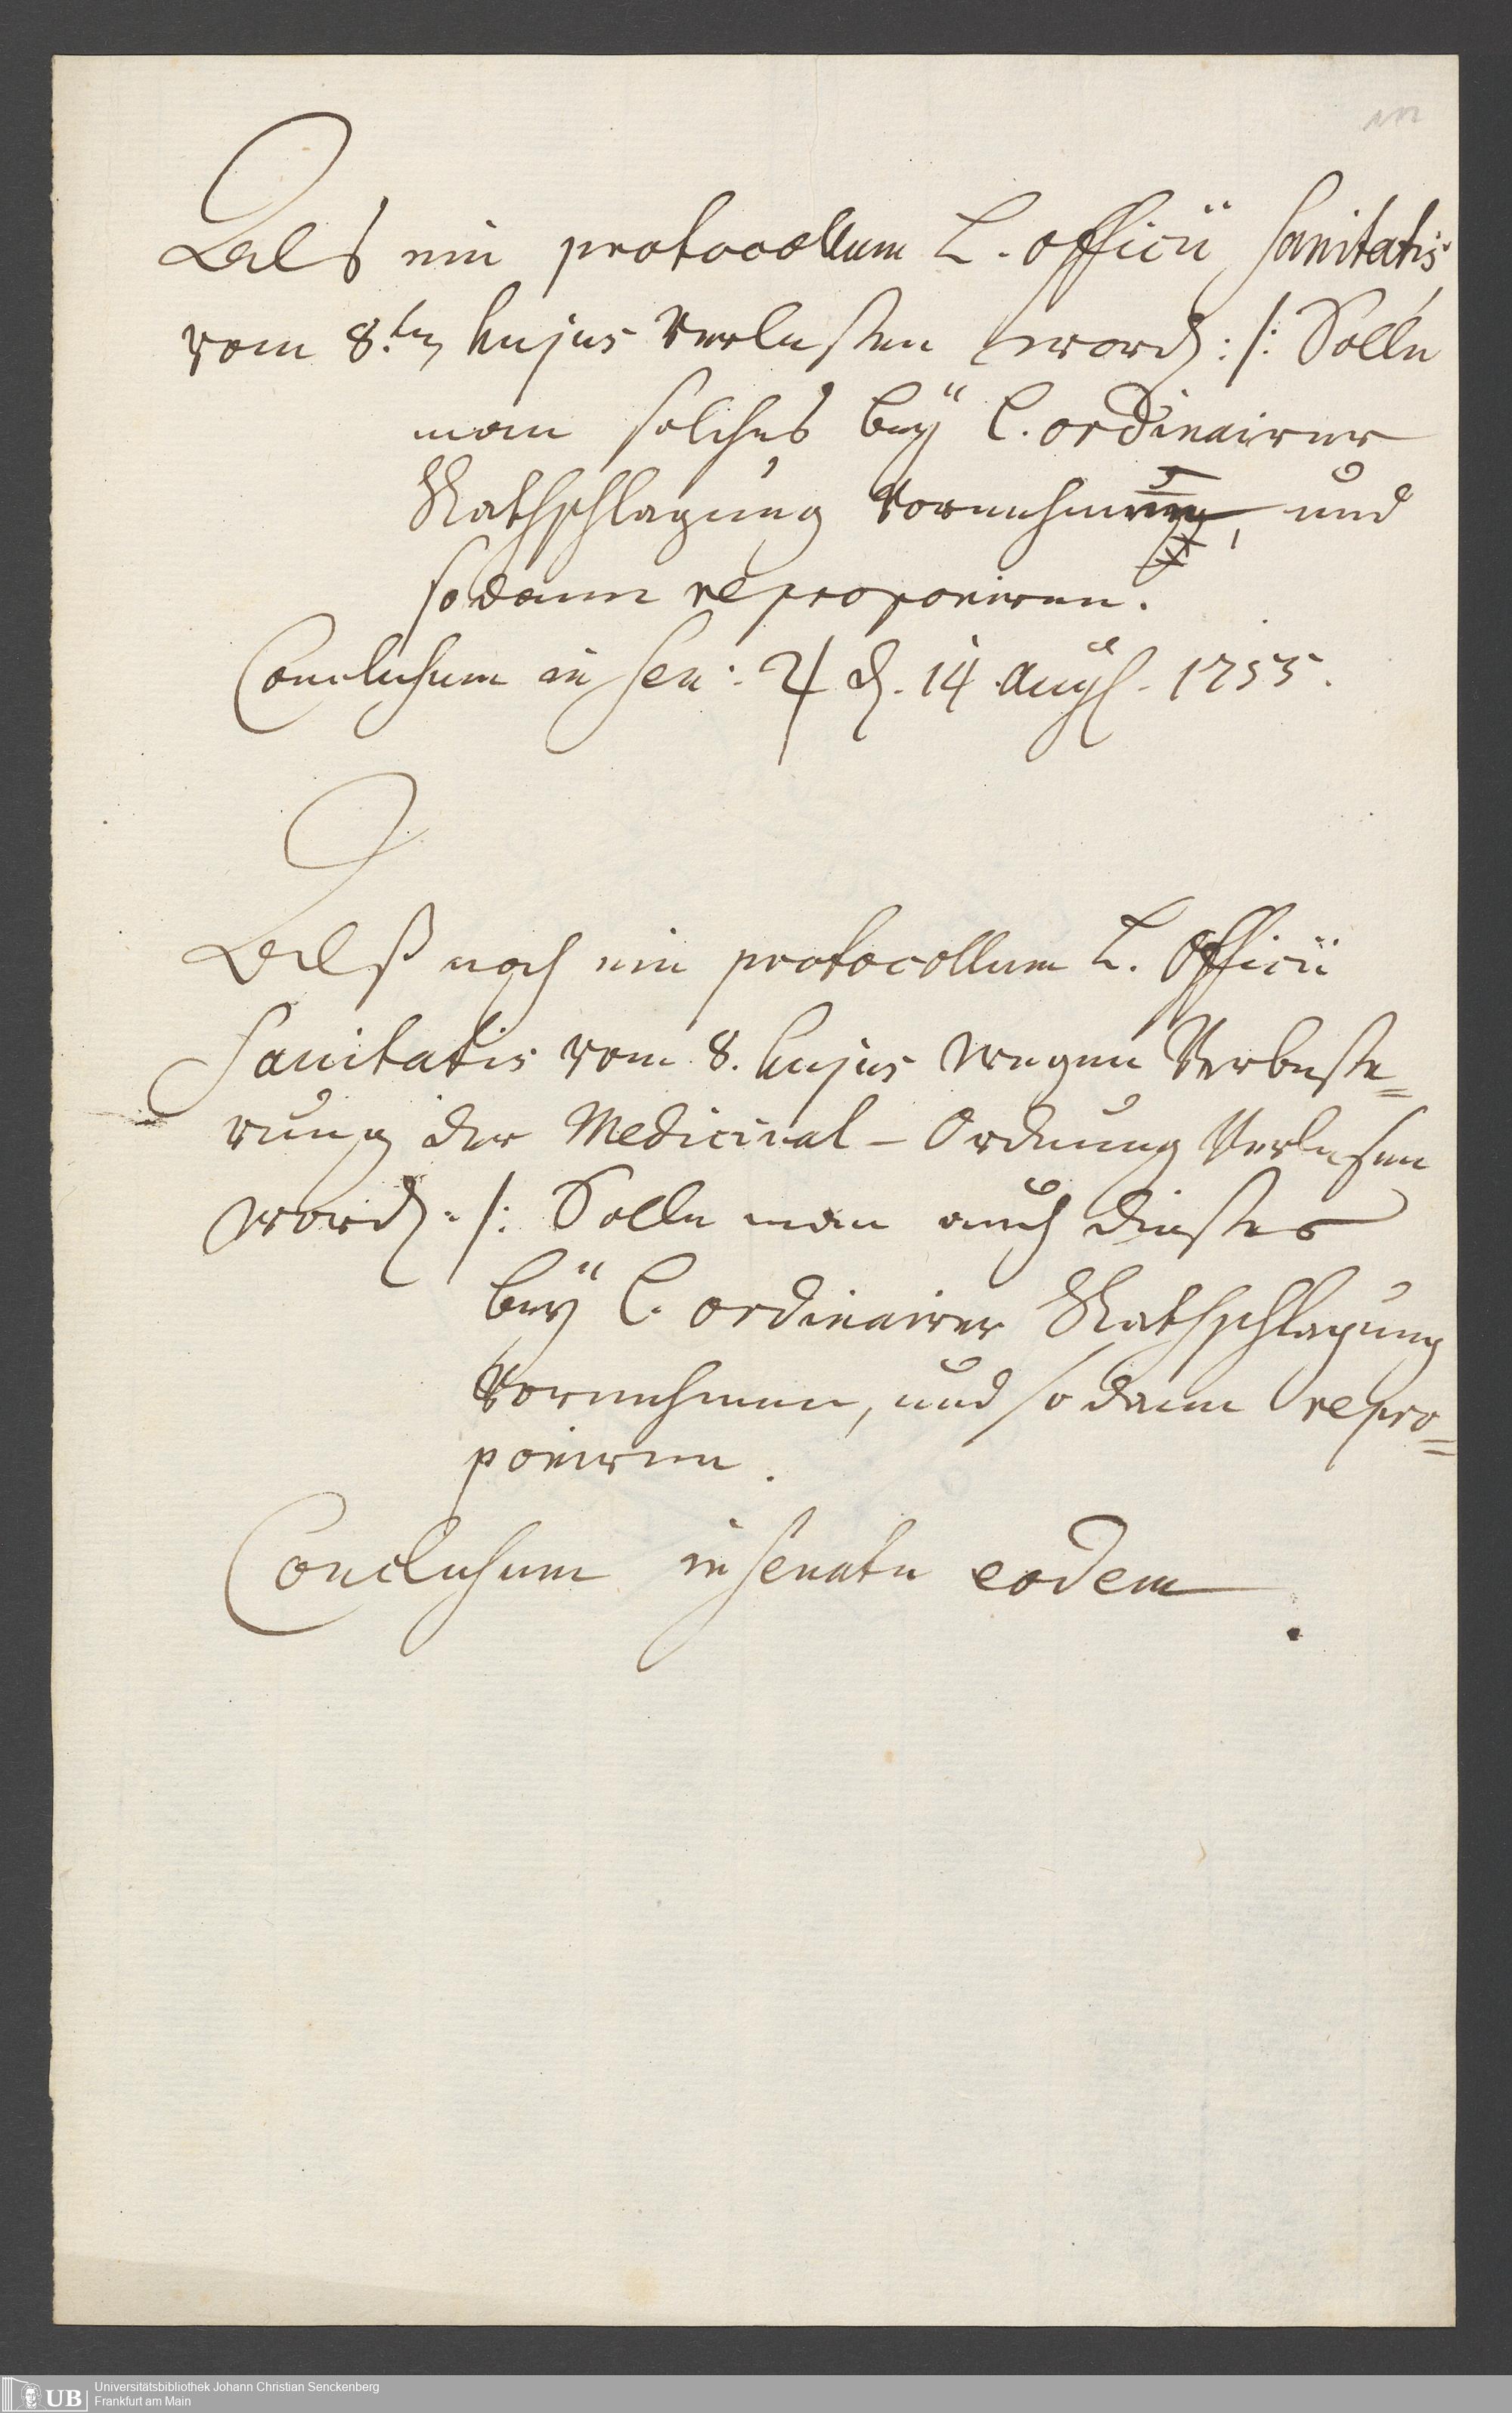 Als ein protocollum L. officii Sanitatis
vom 8.ten hujus verlesen word: /: Solle
man solches beÿ L. ordinairer
Rathschlagung vornehmen, und
sodann reproponiren.
Conclusum in Sen: ♃ d. 14. Aug. 1755.
Alß noch ein protocollum L. Officii
Sanitatis vom 8. hujus wegen Verbeße=
rung der Medicinal-Ordnung verlesen
word: /: Solle man auch dießes
beÿ L. ordinairer Rathschlagung
vornehmen, und sodann repro=
poniren.
Conclusum in Senatu eodem.
UB Universitätsbibliothek Johann Christian Senckenberg
Frankfurt am Main